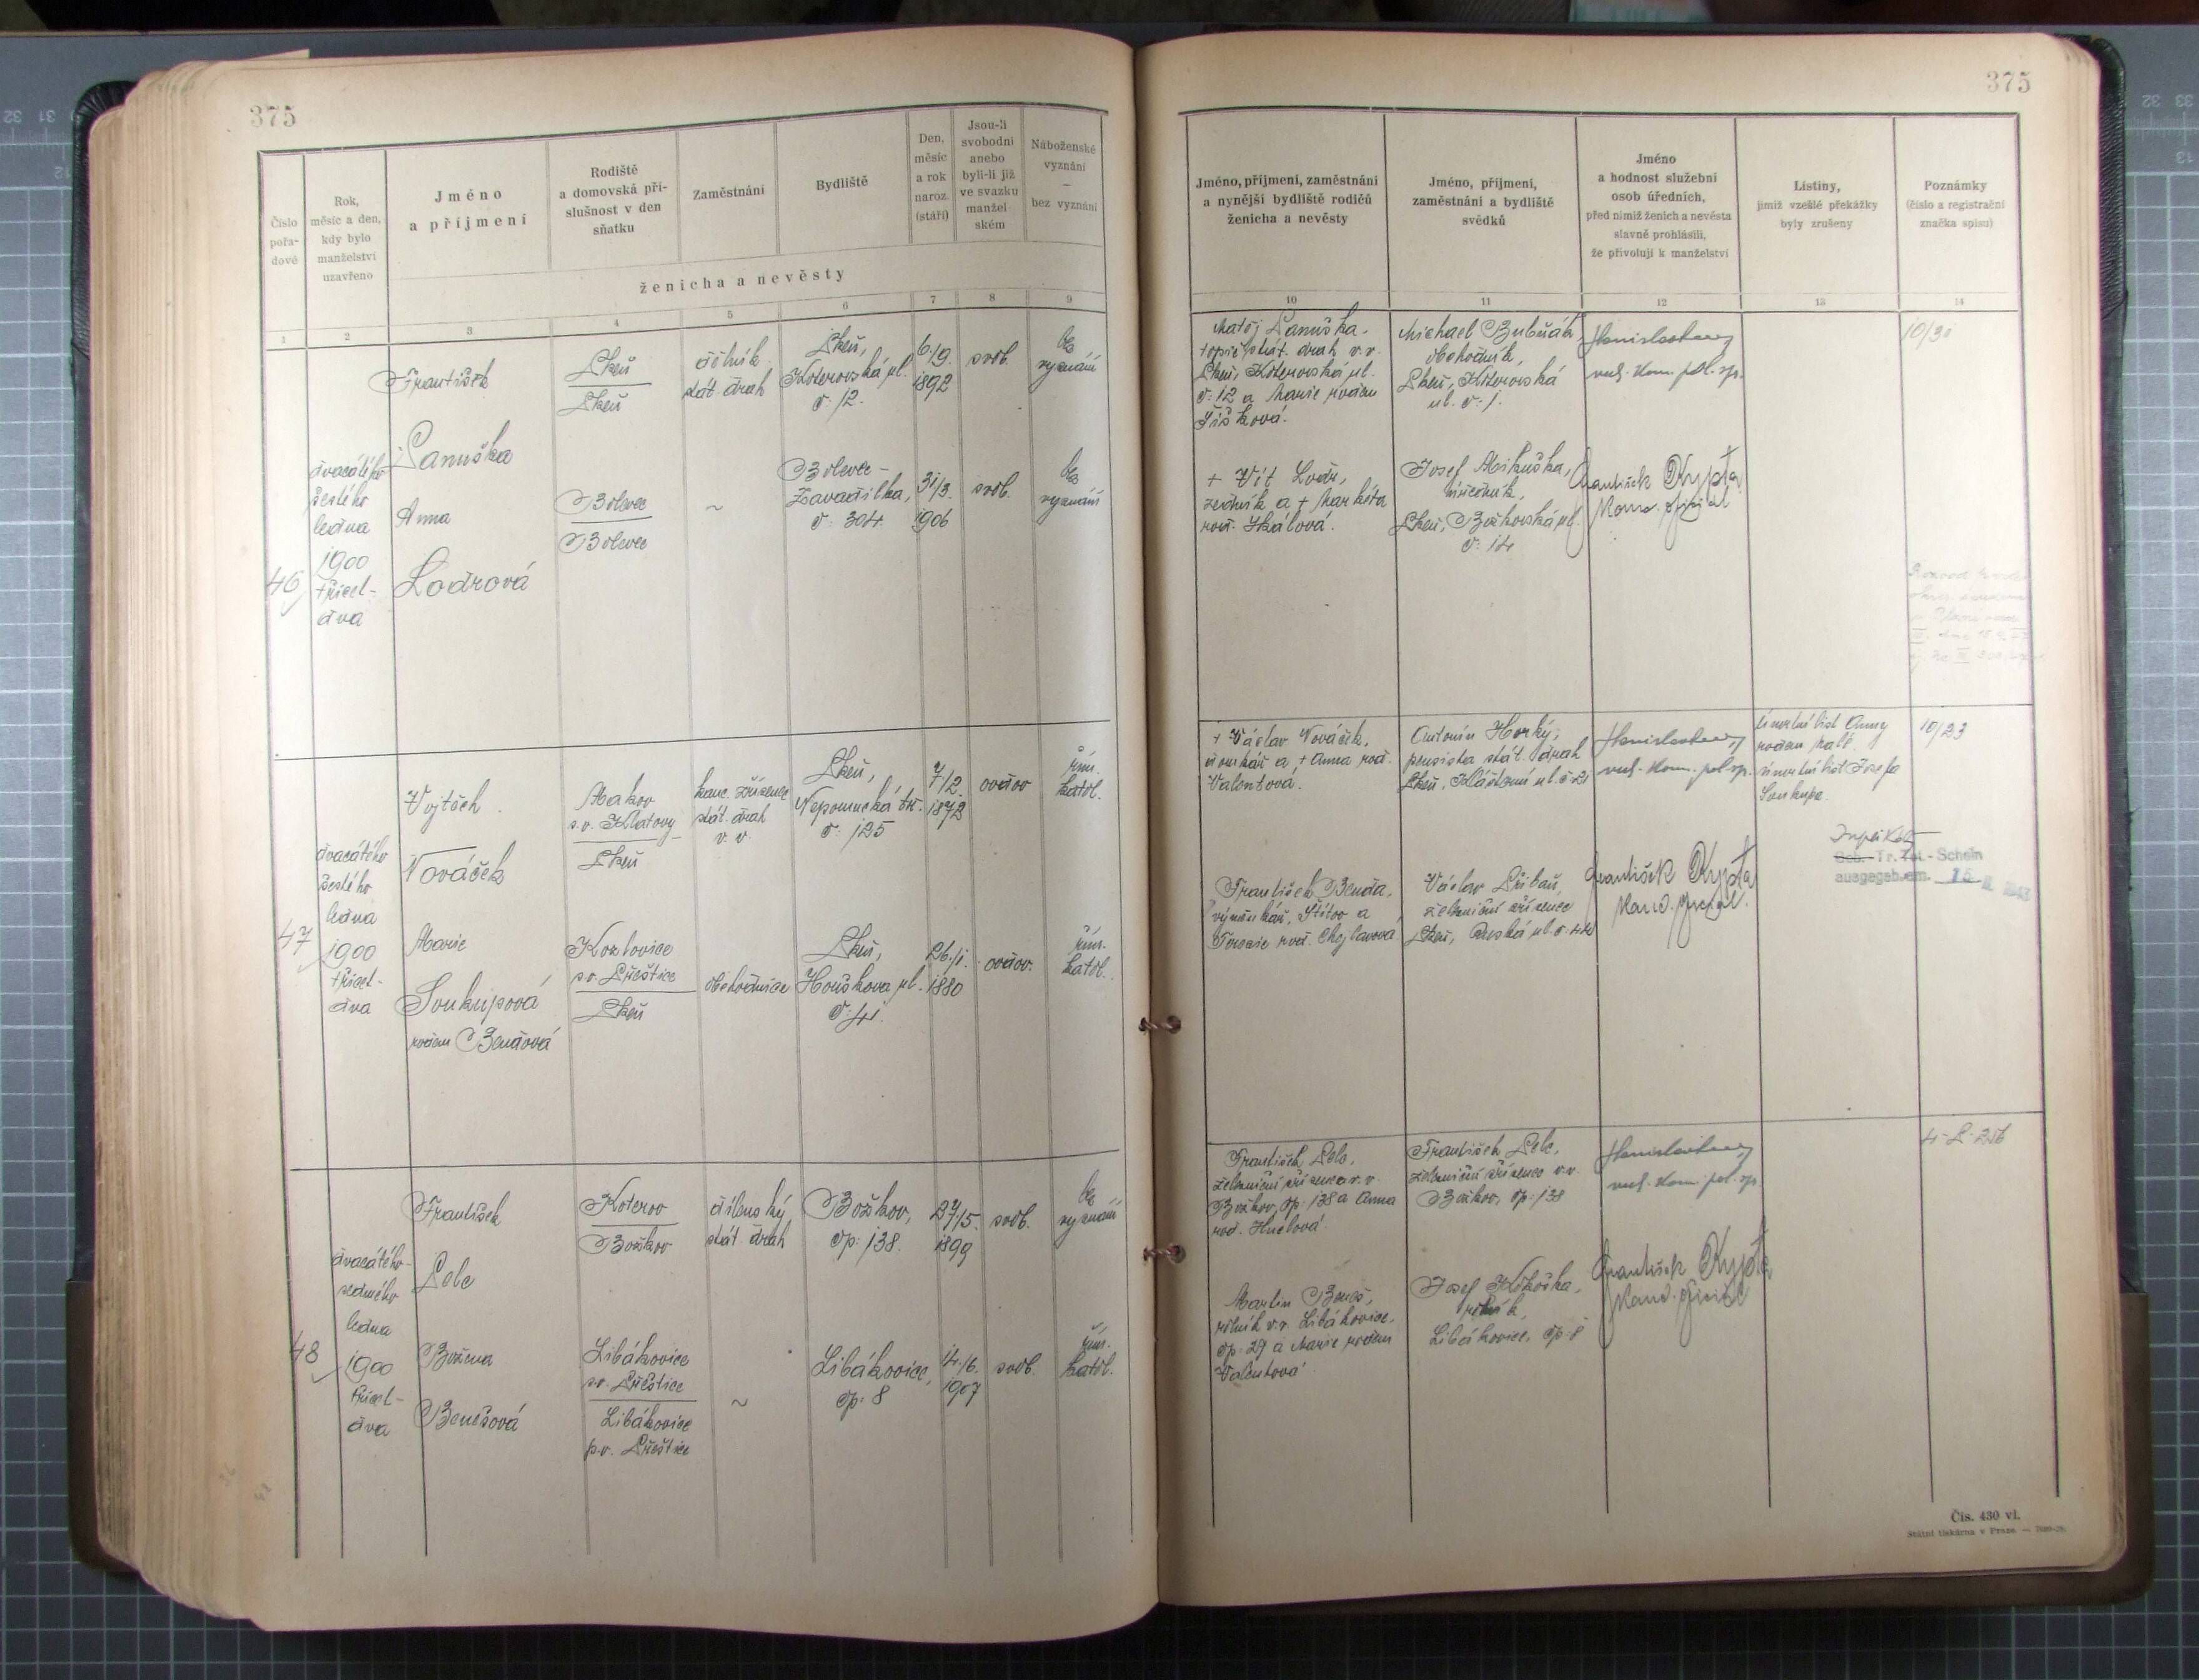 375
Číslo pořa- dové
Rok, měsíc a den, kdy bylo manželství uzavřeno
Jméno a příjmení
Rodiště a domovská pří- slušnost v den sňatku
Zaměstnání
Bydliště
Den, měsíc a rok naroz. (stáří)
Jsou-li svobodni anebo byli-li již ve svazku manžel ském
Náboženské vyznání — bez vyznání
ženicha a nevěsty
1 2 3 4 5 6 7 8 9
46
dvacátého
šestého
ledna
1900
třicet-
dva
František
Panuška
Plzeň
Plzeň
dělník
stát. drah
Plzeň,
Koterovská ul.
č. 12.
6./9.
1892
svob.
bez
vyznání
Anna
Lodrová
Bolevec
Bolevec
~
Bolevec-
Zavadilka,
č. 304.
31/3.
1906
svob.
bez
vyznání
47
dvacátého
šestého
ledna
1900
třicet-
dva
Vojtěch
Nováček
Makov
s.o. Klatovy
Plzeň
kanc. zřízenec
stát. drah
v. v.
Plzeň,
Nepomucká tř.
č. 125
7/2.
1872
ovdov
řím.
katol.
Marie
Soukupová
rozem Bendová
Kozlovice
s.o. Přeštice
Plzeň
obchodnice
Plzeň,
Houškova ul.
č. 41.
26./1.
1880
ovdov.
řím.
katol.
48
dvacátého-
sedmého
ledna
1900
třicet-
dva
František
Pelc
Koterov
Božkov
dílenský
stát. drah
Božkov,
čp. 138.
27./5.
1899
svob.
bez
vyznání
Božena
Benešová
Libákovice
s.o. Přeštice
Libákovice
p.o. Přeštice
~
Libákovice,
čp. 8
14./6.
1907
svob.
řím.
katol.
375
Jméno, příjmení, zaměstnání a nynější bydliště rodičů ženicha a nevěsty
Jméno, příjmení, zaměstnání a bydliště svědků
Jméno a hodnost služební osob úředních, před nimiž ženich a nevěsta slavně prohlásili, že přivolují k manželství
Listiny, jimiž vzešlé překážky byly zrušeny
Poznámky (číslo a registrační značka spisu)
10 11 12 13 14
Matěj Panuška,
topič stát. drah v. v.
Plzeň, Koterovská ul.
č. 12 a Marie rozem
Šišková.
Michael Bubňák,
obchodník,
Plzeň, Koterovská
ul. č. 1.
vrch. kom. pol. sp.
10/30
+ Vít Lodr,
zedník a + Markéta
roz. Skálová.
Josef Mikuška,
úředník,
Plzeň, Božkovská ul.
č. 14
František Krypta
kanc. oficiál
+ Václav Nováček,
domkář a + Anna roz.
Valentová.
Antonín Horký,
pensista stát. drah
Plzeň, Klášterní ul. č. 21
vrch. kom. pol. sp.
úmrtní list Anny
rozem
úmrtní list Josefa
Soukupa.
10/23
František Benda,
výměnkář, Štítov a
Terezie roz. Chejlavová
Václav Přibáň,
železniční zřízenec
Plzeň, Ruská ul. č. 44
František Krypta
kanc. oficiál.
Duplikát
Geb.- Tr. Tot.- Schein
ausgegeb. am. 15
František Pelc,
železniční zřízenec v. v.
Božkov, čp. 138 a Anna
roz. Huclová
František Pelc,
železniční zřízenec v. v.
Božkov, čp. 138
vrch. kom. pol. sp.
4-P-256
Martin Beneš,
rolník v. v. Libákovice,
čp. 29 a Marie rozem
Valentová
Josef Křikoška,
rolník,
Libákovice, čp. 8
František Krypta
kanc. oficiál
Čís. 430 vl.
Státní tiskárna v Praze.